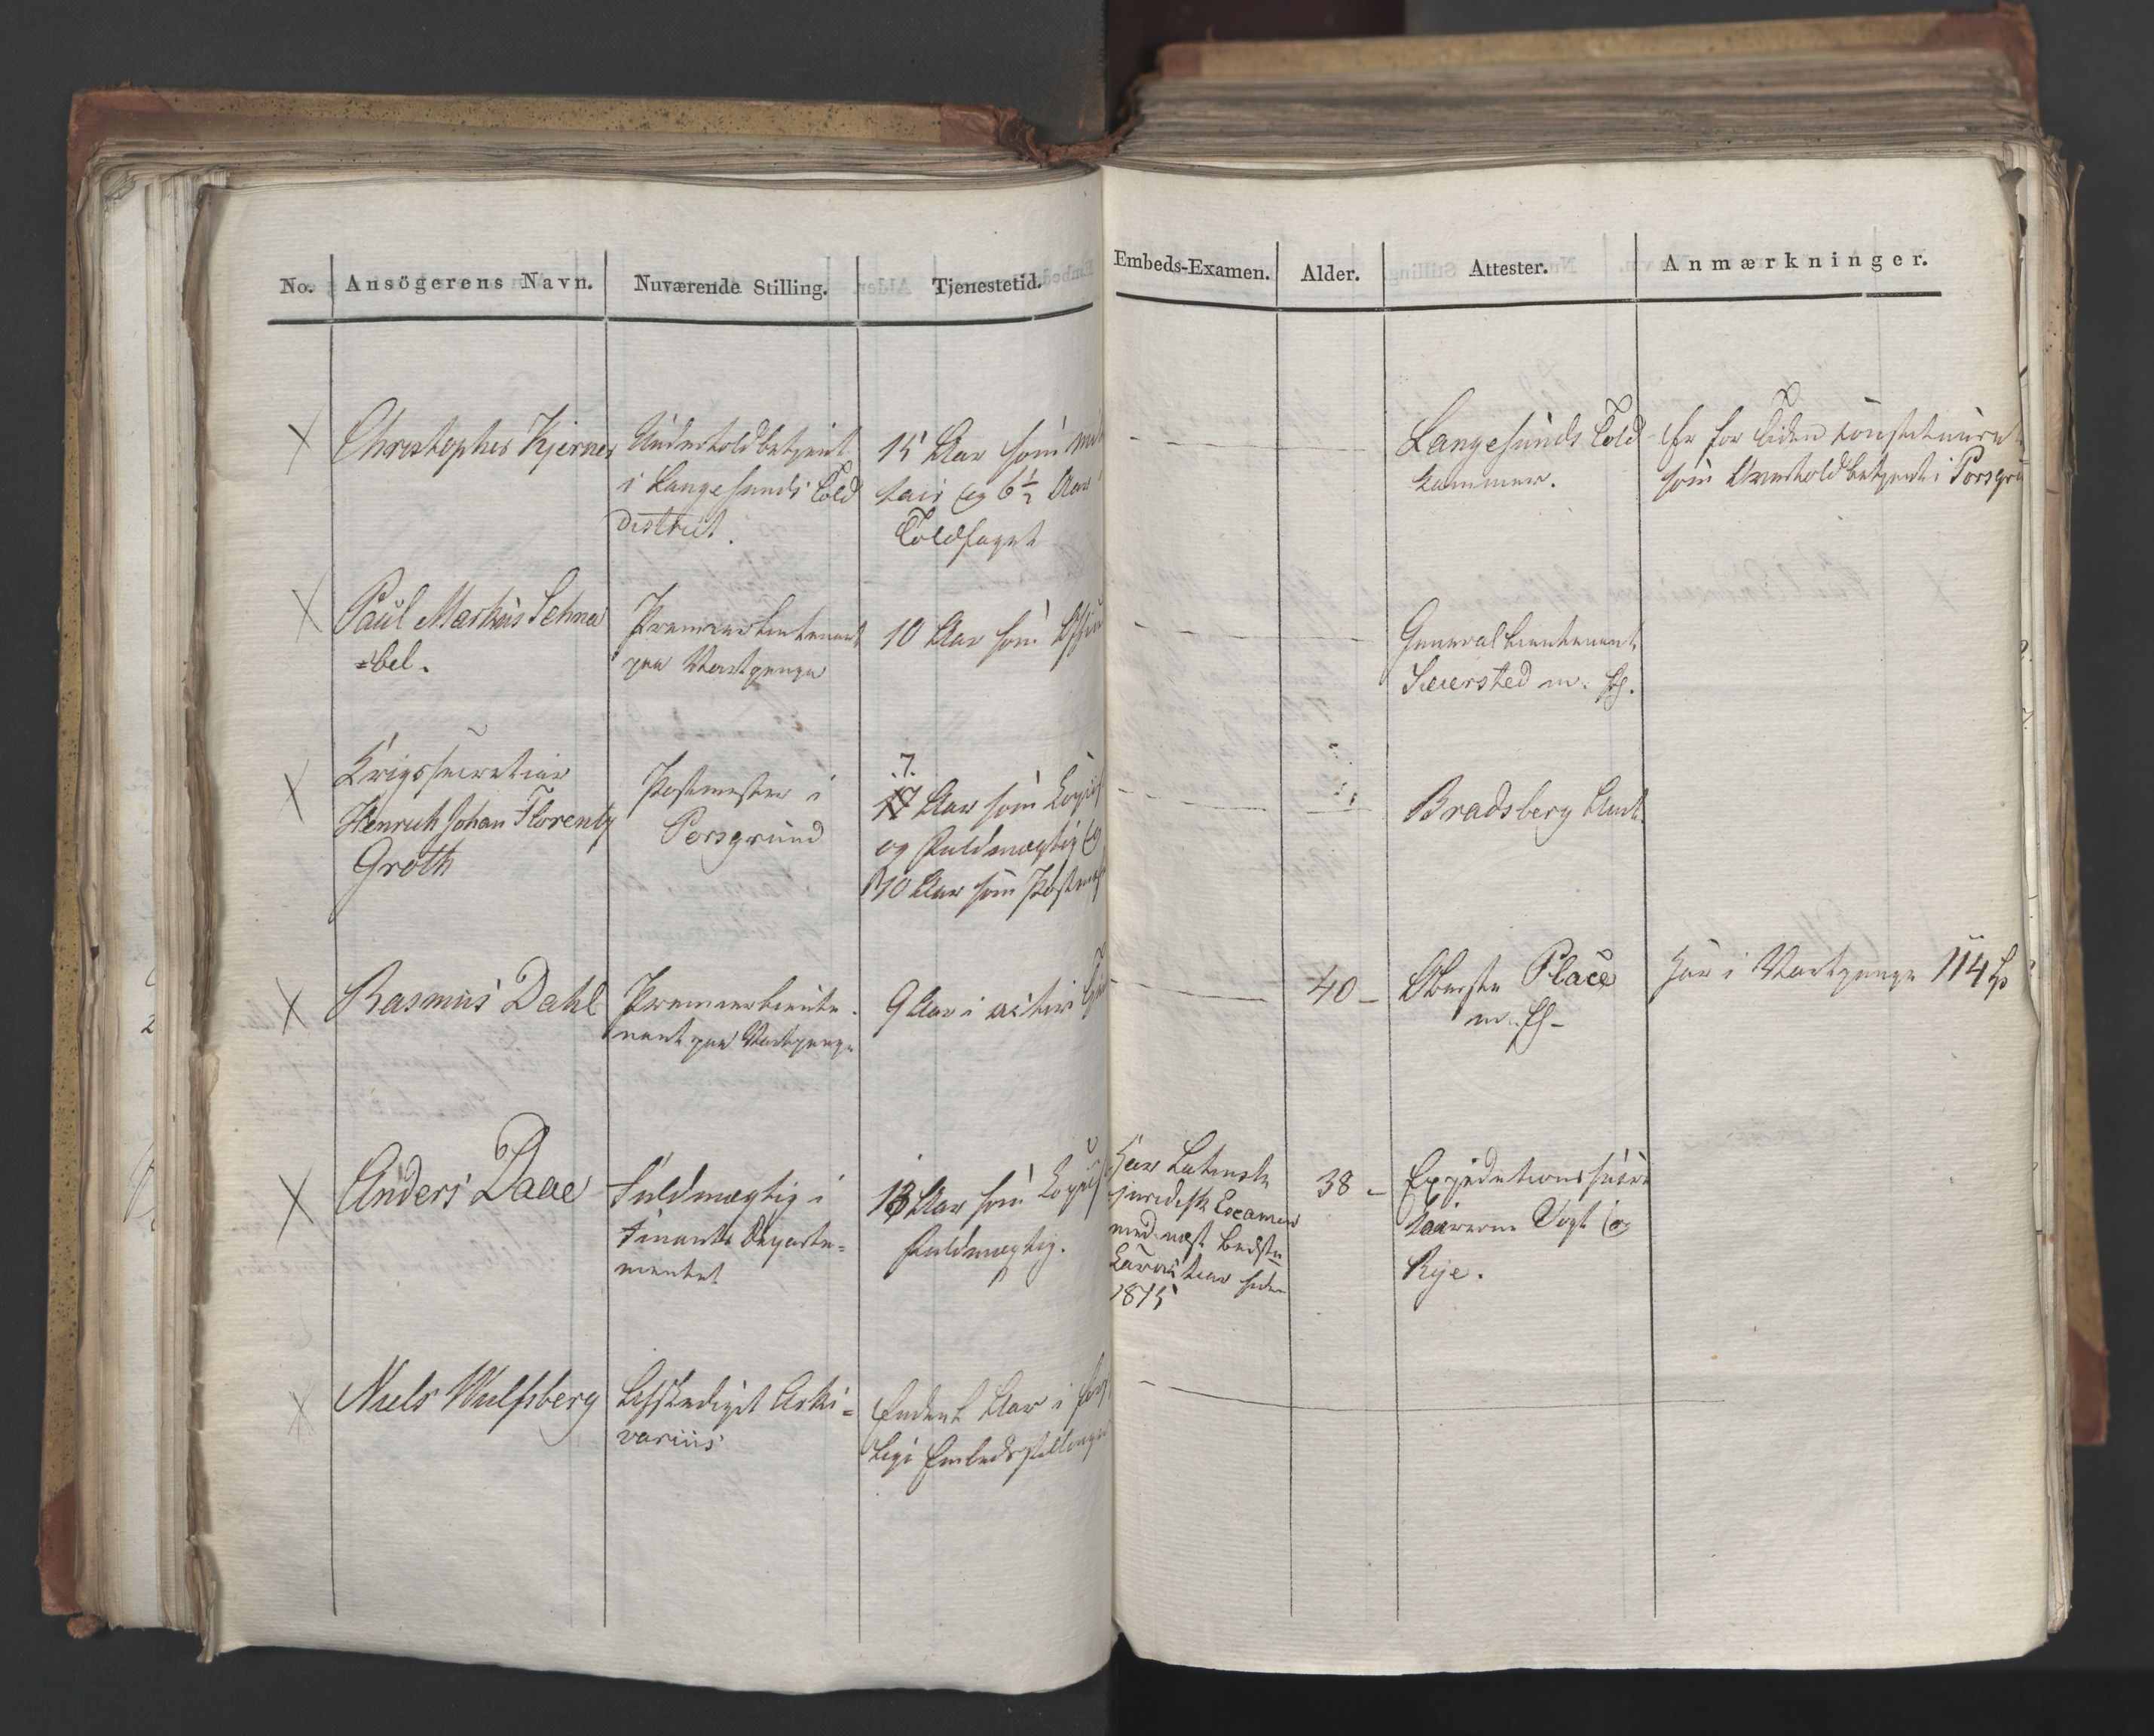 No. Ansögerens Navn. Nuværende Stilling. Tjenestetid. Embeds-Examen. Alder. Attester. Anmærkninger.
Christopher Kjerner
Undertoldbetjent
i Langesunds Told
district.
15 Aar som mili
tair og 6½ Aar i
Toldfaget
Langesunds Told
kammer.
Er for Tiden constitueret
som Overtoldbetjent i Porsgru
Paul Markus Schna
=bel.
Premierlieutenant
paa Vartpenge
10 Aar som Officie
General Lieutenant
Seiersted m. fl.
Krigssecretair
Henrich Johan Florentz
Groth
Postmester i
Porsgrund
7.
17 Aar som Copiist
og Fuldmægtig og
10 Aar som Postmest
Bradsberg Amt.
Rasmus Dahl
Premierlieute-
nant paa Vartpenge
9 Aar i activ
40 -
Oberste Place
m. fl -
Har i Vartpenge 114 Sp
Anders Daae
Fuldmægtig i
Finants Departe=
mentet
13 Aar som Copiist
Fuldmægtig.
Har Latinsk
juridisk Examen
med næst bedste
Caracteer siden
1815
38 -
Expeditionssecre
tairerne Vogt og
Rye.
Niels Wulfsberg
Afskediget Arki=
varius
Endeel Aar i for
lige Embedsstillinger